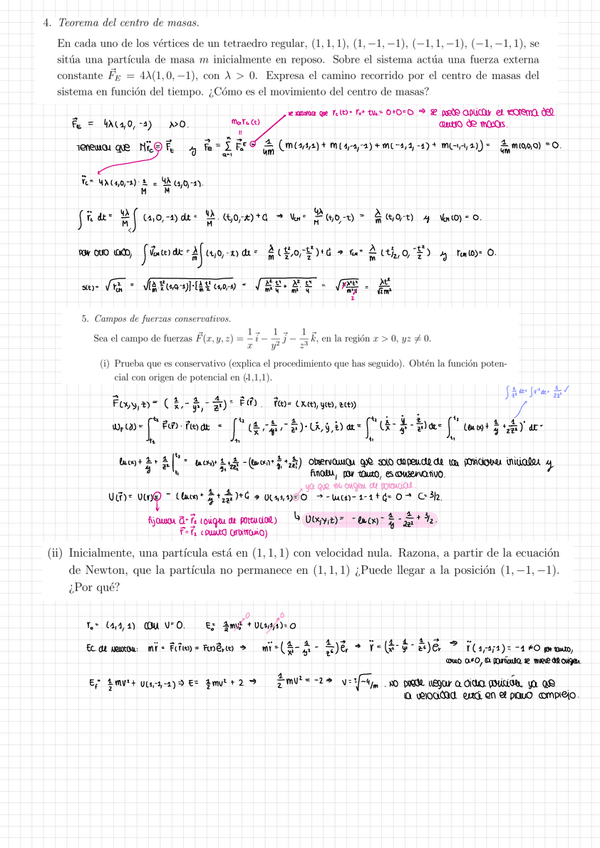 4. Teorema del centro de masas.
En cada uno de los vértices de un tetraedro regular, (1, 1, 1), (1, −1, −1), (−1, 1, −1), (−1, −1, 1), se
sitúa una partícula de masa m inicialmente en reposo. Sobre el sistema actúa una fuerza externa
constante F⃗_E = 4λ(1, 0, −1), con λ > 0. Expresa el camino recorrido por el centro de masas del
sistema en función del tiempo. ¿Cómo es el movimiento del centro de masas?
se satisface que r_c(t) = r_0 + tv_0 = 0+0=0 → se puede aplicar el teorema del
centro de masas.
F⃗_E = 4λ(1, 0, -1) λ>0.
Tenemos que M r̈_c = F⃗_E y
1/4m (m(1,1,1) + m(1,-1,-1) + m(-1,1,-1) + m(-1,-1,1)) = 1/4m m(0,0,0) = 0.
r̈_c = 4λ(1,0,-1) · 1/M = 4λ/M (1,0,-1).
∫ r̈_c dt = 4λ/M ∫ (1,0,-1) dt = 4λ/M (t,0,-t) + C → V_CM = 4λ/M (t,0,-t) = λ/m (t,0,-t) y V_CM(0) = 0.
por otro lado, ∫ V_CM(t) dt = λ/m ∫ (t,0,-t) dt = λ/m (t²/2, 0, -t²/2) + C → r_CM = λ/m (t²/2, 0, -t²/2) y r_CM(0) = 0.
5. Campos de fuerzas conservativos.
Sea el campo de fuerzas F⃗(x, y, z) = 1/x i⃗ − 1/y² j⃗ − 1/z³ k⃗, en la región x > 0, yz ≠ 0.
(i) Prueba que es conservativo (explica el procedimiento que has seguido). Obtén la función poten-
cial con origen de potencial en (1,1,1).
F⃗(x,y,z) = (1/x, -1/y², -1/z³) = F⃗(r⃗). r⃗(t) = (x(t), y(t), z(t))
observamos que solo depende de las posiciones iniciales y
finales, por tanto, es conservativo.
ya que es origen de potencial
U(1,1,1) = 0 → -ln(1) -1 -1 + C = 0 → C = 3/2.
fijamos a⃗ = r⃗_0 (origen de potencial)
r⃗ = r⃗_2 (punto arbitrario)
U(x,y,z) = -ln(x) - 1/y - 1/2z² + 3/2.
(ii) Inicialmente, una partícula está en (1, 1, 1) con velocidad nula. Razona, a partir de la ecuación
de Newton, que la partícula no permanece en (1, 1, 1) ¿Puede llegar a la posición (1, −1, −1).
¿Por qué?
r_0 = (1,1,1) con v=0. E_0 = 1/2 mv_0² + U(1,1,1) = 0
Ec. de Newton: m r̈ = F⃗(r⃗(t)) = F(r) e⃗_r(t) →
r̈(1,1,1) = -1 ≠ 0 por tanto,
como a≠0, la partícula se mueve de origen
E_f = 1/2 mv² + U(1,-1,-1) → E = 1/2 mv² + 2 → 1/2 mv² = -2 → v = √-4/m . No puede llegar a dicha posición ya que
la velocidad está en el plano complejo.